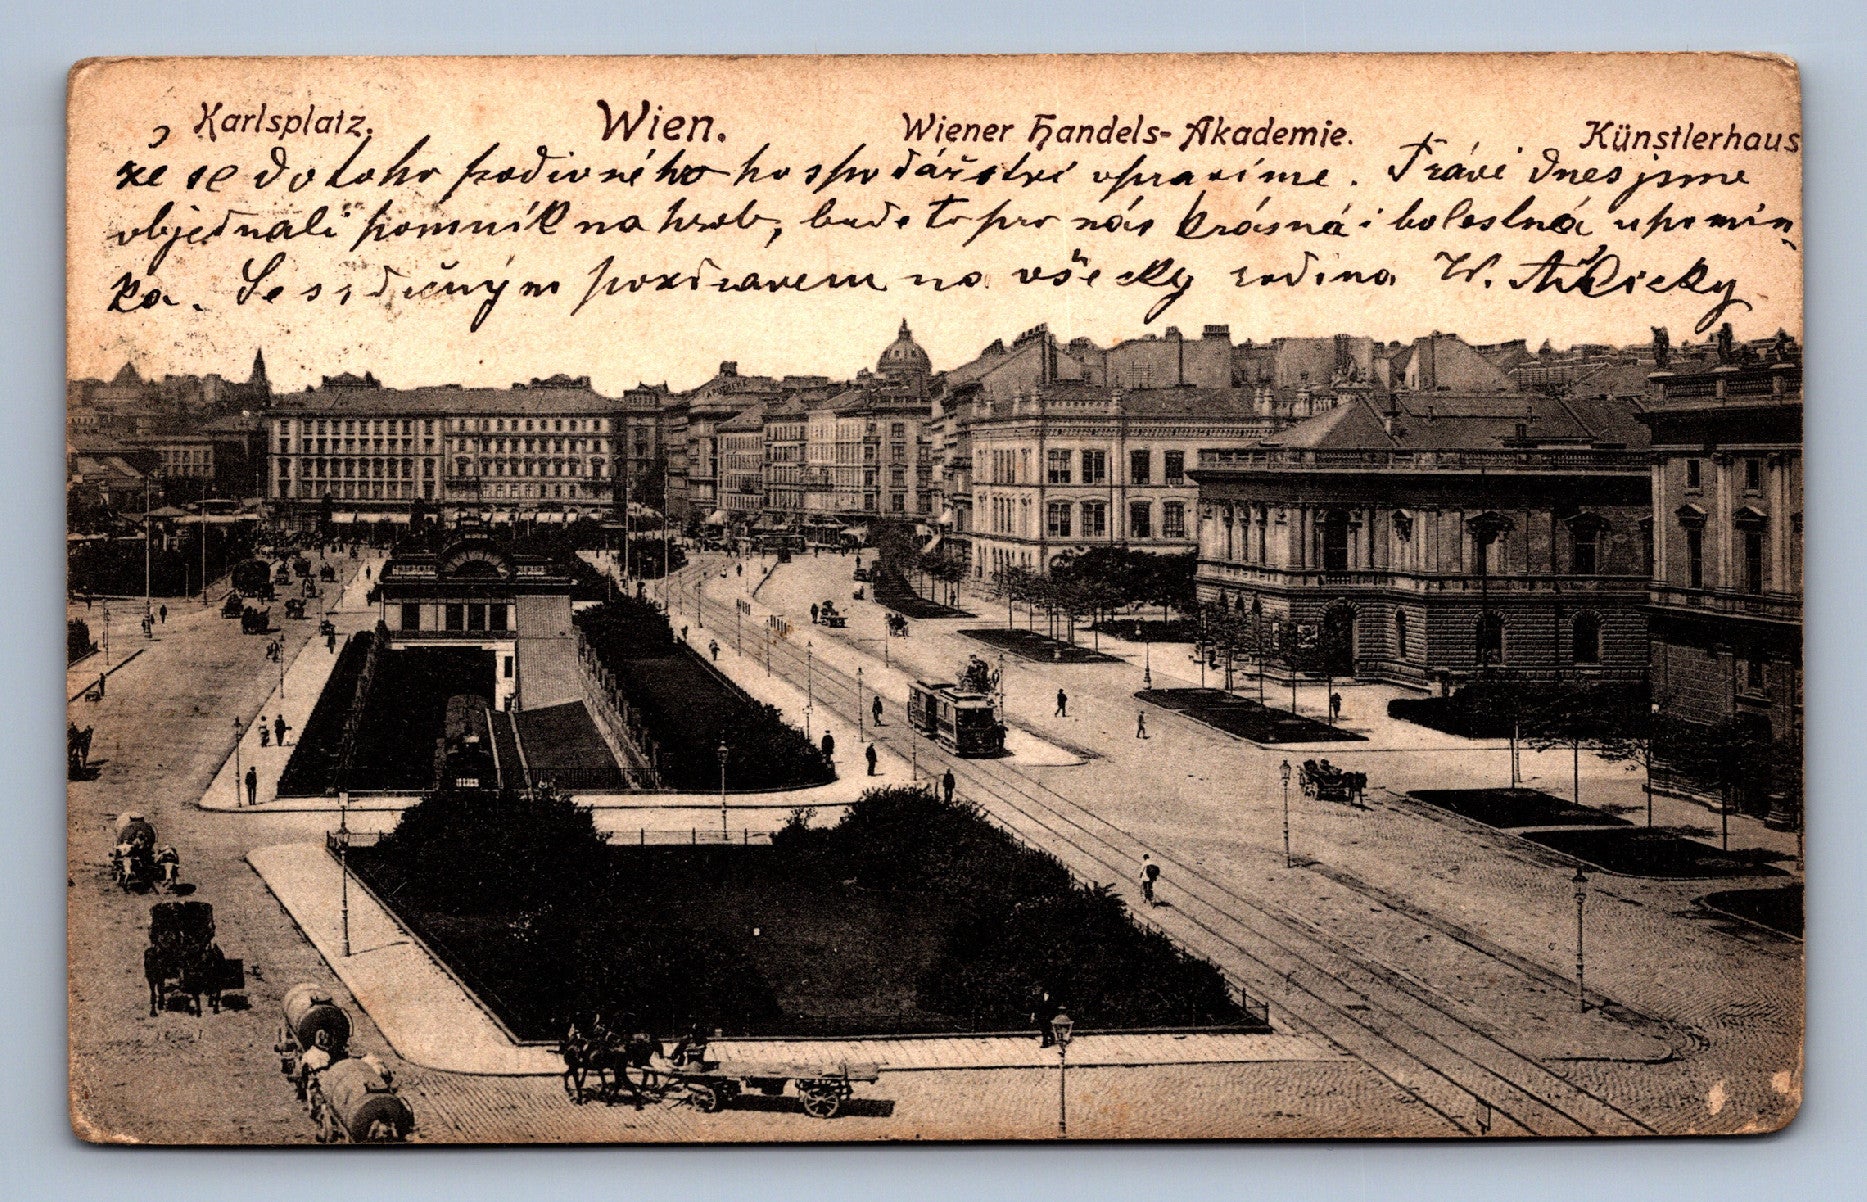 Karlsplatz. Wien. Wiener Handels-Akademie. Künstlerhaus
že se do toho podivného hospodářství upravíme. Trávi dnes jsme
objednali pomník na hrob, bude to pro nás krásná i bolestná upomín-
ka. Se srdečným pozdravem na všecky rodina W.